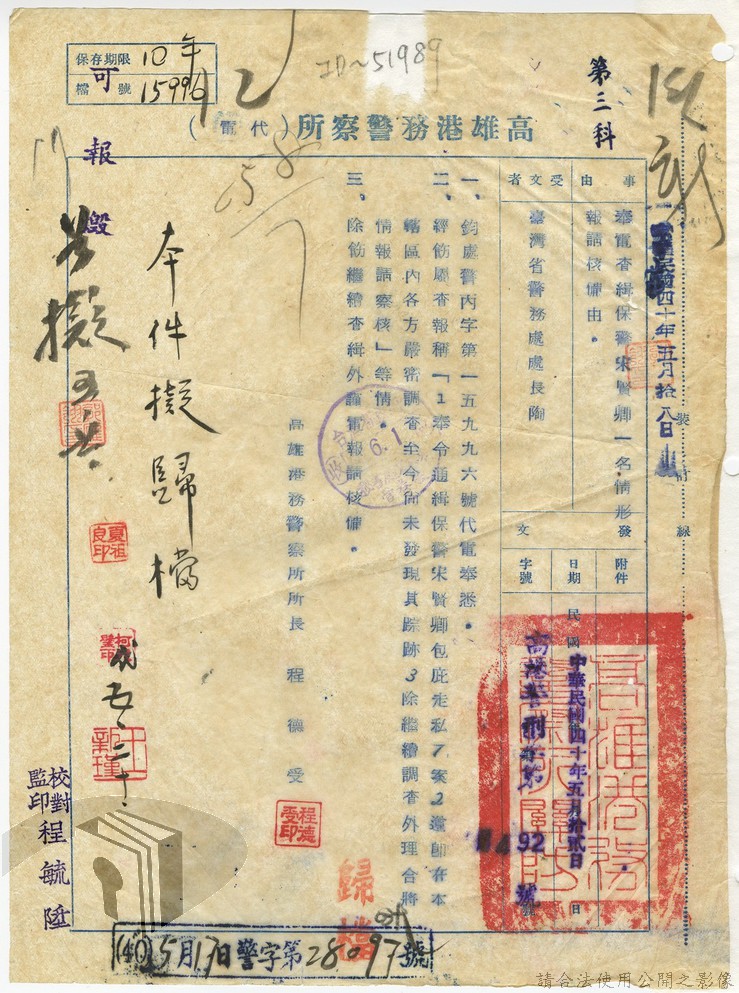 保存期限 10年
檔號 15996
ID~51989
第三科
高雄港務警察所(代電)
事由
奉電查緝保警宋賢卿一名情形
報請核備由。
受文者
臺灣省警務處處長陶
發文
附件
日期
字號
民國
中華民國四十年五月拾貳日
高港警刑字第
92號
民國四十年五月拾八日
裝訂線
一、鈞處警內字第一五九九六號代電奉悉。
二、經飭屬查報稱「1奉令通緝保警宋賢卿包庇走私7案2遵即在本
轄區內各方嚴密調查至今尚未發現其踪跡3除繼續調查外理合將
情報請察核」等情。
三、除飭繼續查緝外謹電報請核備。
高雄港務警察所所長 程德受
程德受印
6.1
可報毀
本件擬歸檔
夏祖良印
五、二十、
王新瑾
校對
監印
程毓陞
歸檔
(40)5月17日警字第28097號
請合法使用公開之影像